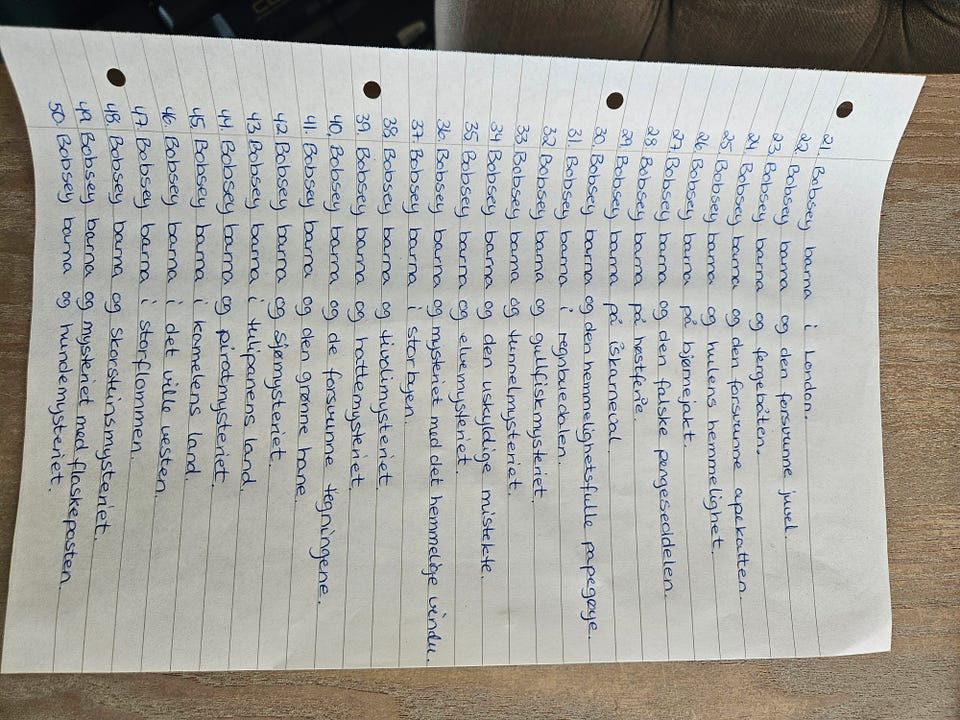 21. Bobsey barna i London.
22. Bobsey barna og den forsvunne juvel.
23. Bobsey barna og fergebåten.
24. Bobsey barna og den forsvunne apekatten.
25. Bobsey barna og hulens hemmelighet.
26. Bobsey barna på bjørnejakt.
27. Bobsey barna og den falske pengeseddelen.
28. Bobsey barna på høstferie.
29. Bobsey barna på iskarneval.
30. Bobsey barna og den hemmelighetsfulle papegøye.
31. Bobsey barna i regnbuedalen.
32. Bobsey barna og gullfiskmysteriet.
33. Bobsey barna og tunnelmysteriet.
34. Bobsey barna og den uskyldige mistekte.
35. Bobsey barna og elvemysteriet.
36. Bobsey barna og mysteriet med det hemmelige vindu.
37. Bobsey barna i storbyen.
38. Bobsey barna og tivolimysteriet.
39. Bobsey barna og hattemysteriet.
40. Bobsey barna og de forsvunne tegningene.
41. Bobsey barna og den grønne hane.
42. Bobsey barna og sjømysteriet.
43. Bobsey barna i tulipanens land.
44. Bobsey barna og piratmysteriet.
45. Bobsey barna i kamelens land.
46. Bobsey barna i det ville vesten.
47. Bobsey barna i storflommen.
48. Bobsey barna og skorstinsmysteriet.
49. Bobsey barna og mysteriet med flaskeposten.
50. Bobsey barna og hundemysteriet.